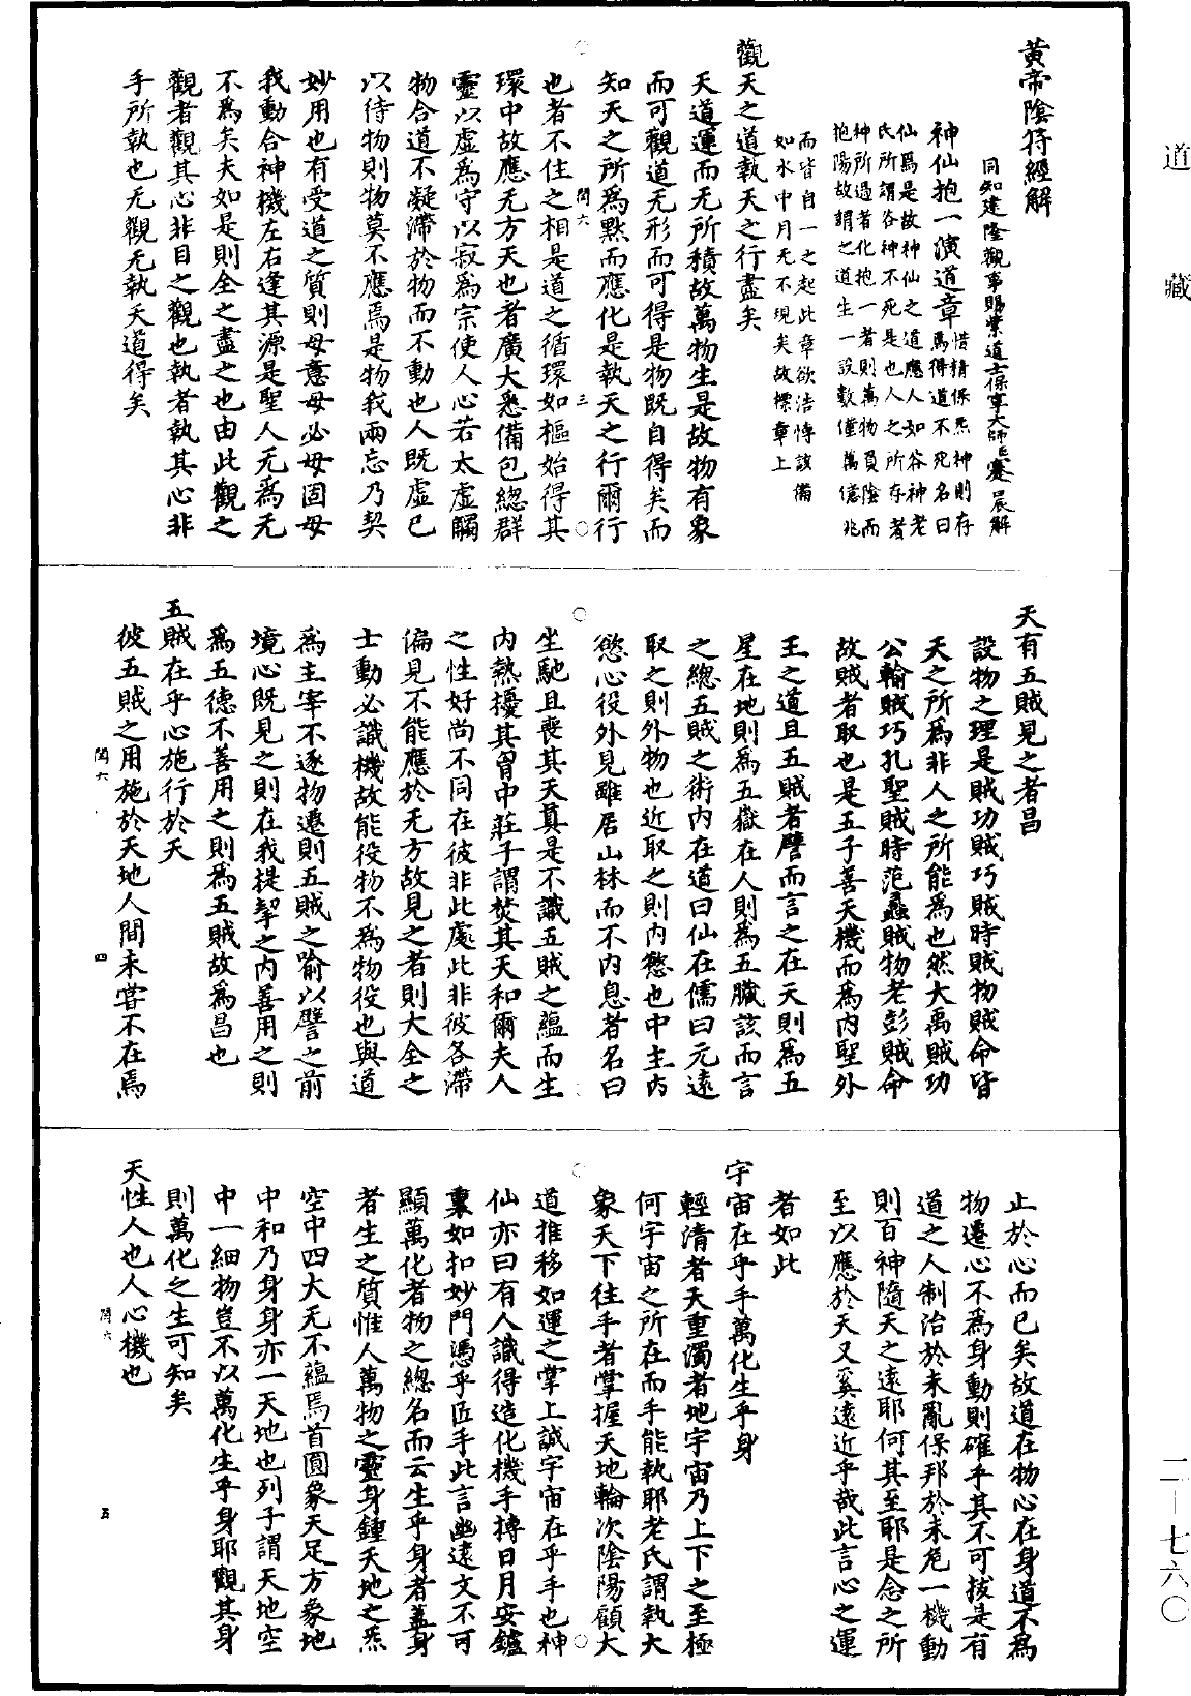 道藏
黃帝陰符經解
同知建隆觀事賜紫道士保寧大師臣蹇晨解
神仙抱一演道章
惜精保炁神則存
焉得道不死名曰
仙焉是故神仙之道應人如谷神老
氏所謂谷神不死是也人之所存者
神所過者化抱一者則萬物負陰而
抱陽故謂之道生一設數僅萬億兆
而皆自一之起此章欲浩博該備
如水中月无不現矣故標章上
觀天之道執天之行盡矣
天道運而无所積故萬物生是故物有象
而可觀道无形而可得是物既自得矣而
知天之所為默而應化是執天之行爾行
閏六
三
也者不住之相是道之循環如樞始得其
環中故應无方天也者廣大悉備包總群
靈以虛為守以寂為宗使人心若太虛觸
物合道不凝滯於物而不動也人既虛已
以待物則物莫不應焉是物我兩忘乃契
妙用也有受道之質則毋意毋必毋固毋
我動合神機左右逢其源是聖人无為无
不為矣夫如是則全之盡之也由此觀之
觀者觀其心非目之觀也執者執其心非
手所執也无觀无執天道得矣
天有五賊見之者昌
設物之理是賊功賊巧賊時賊物賊命皆
天之所為非人之所能為也然大禹賊功
公輸賊巧孔聖賊時范蠡賊物老彭賊命
故賊者取也是五子善天機而為內聖外
王之道且五賊者譬而言之在天則為五
星在地則為五嶽在人則為五臟該而言
之總五賊之術內在道曰仙在儒曰元遠
取之則外物也近取之則內慾也中主內
慾心役外見雖居山林而不內息者名曰
坐馳且喪其天真是不識五賊之蘊而生
內熱擾其胷中莊子謂焚其天和爾夫人
之性好尚不同在彼非此處此非彼各滯
偏見不能應於无方故見之者則大全之
士動必識機故能役物不為物役也與道
為主宰不逐物遷則五賊之喻以譬之前
境心既見之則在我提挈之內善用之則
為五德不善用之則為五賊故為昌也
五賊在乎心施行於天
彼五賊之用施於天地人間未嘗不在焉
閏六
四
止於心而已矣故道在物心在身道不為
物遷心不為身動則確乎其不可拔是有
道之人制治於未亂保邦於未危一機動
則百神隨天之遠耶何其至耶是念之所
至以應於天又奚遠近乎哉此言心之運
者如此
宇宙在乎手萬化生乎身
輕清者天重濁者地宇宙乃上下之至極
何宇宙之所在而手能執耶老氏謂執大
象天下往手者掌握天地輪次陰陽顧大
道推移如運之掌上誠宇宙在乎手也神
仙亦曰有人識得造化機手摶日月安鑪
裏如扣妙門憑乎匠手此言幽遠文不可
顯萬化者物之總名而云生乎身者蓋身
者生之質惟人萬物之靈身鍾天地之炁
空中四大无不蘊焉首圓象天足方象地
中和乃身身亦一天地也列子謂天地空
中一細物豈不以萬化生乎身耶觀其身
則萬化之生可知矣
天性人也人心機也
閏六
五
二－七六〇